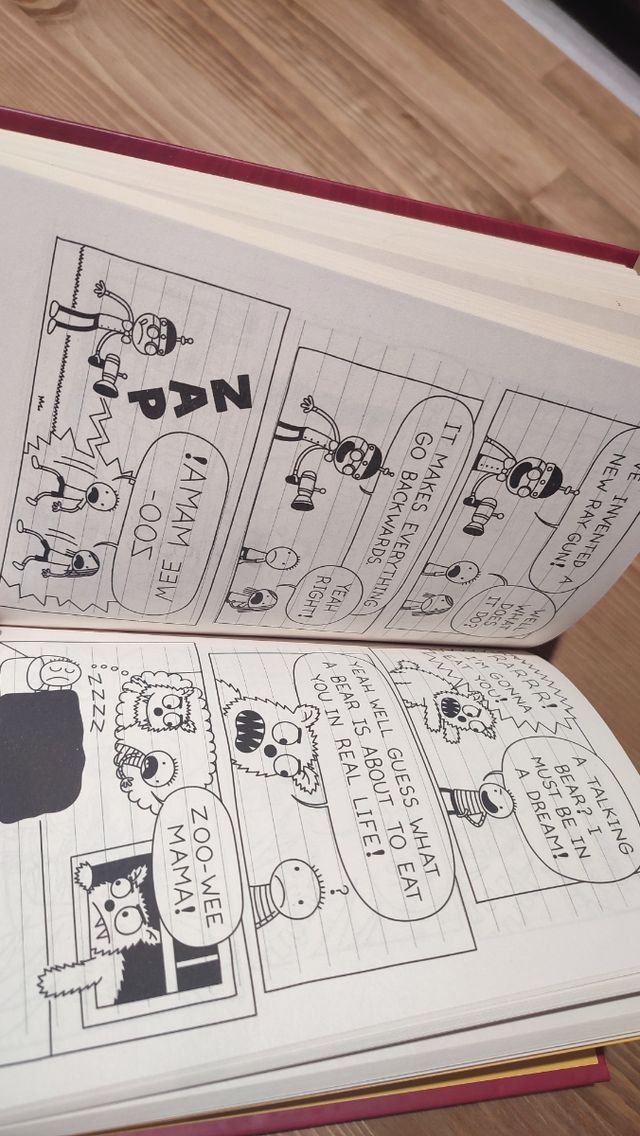 'VE INVENTED A
NEW RAY GUN!
WELL
WHAT
DOES
IT DO?
IT MAKES EVERYTHING
GO BACKWARDS
YEAH
RIGHT!
ZAP
!AMAM EEW
-OOZ
RARRRR!
I'M GUNNA
EAT YOU!
A TALKING
BEAR? I
MUST BE IN
A DREAM!
YEAH WELL GUESS WHAT
A BEAR IS ABOUT TO EAT
YOU IN REAL LIFE!
?
ZZZZ
ZOO-WEE
MAMA!